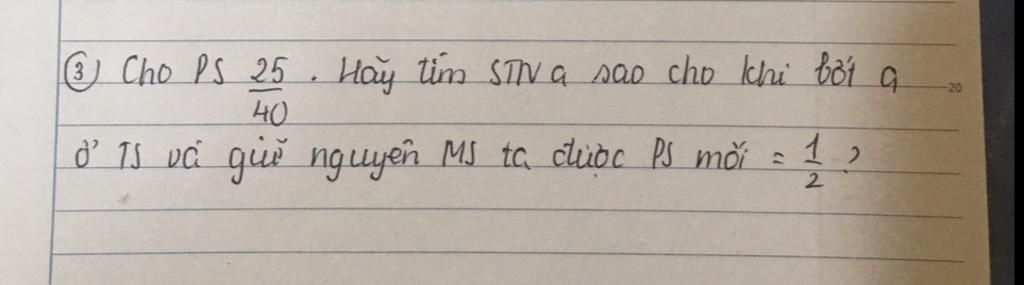 ③ Cho PS 25/40 . Hãy tìm STN a sao cho khi bớt a
ở TS và giữ nguyên MS ta được PS mới = 1/2 ?
20